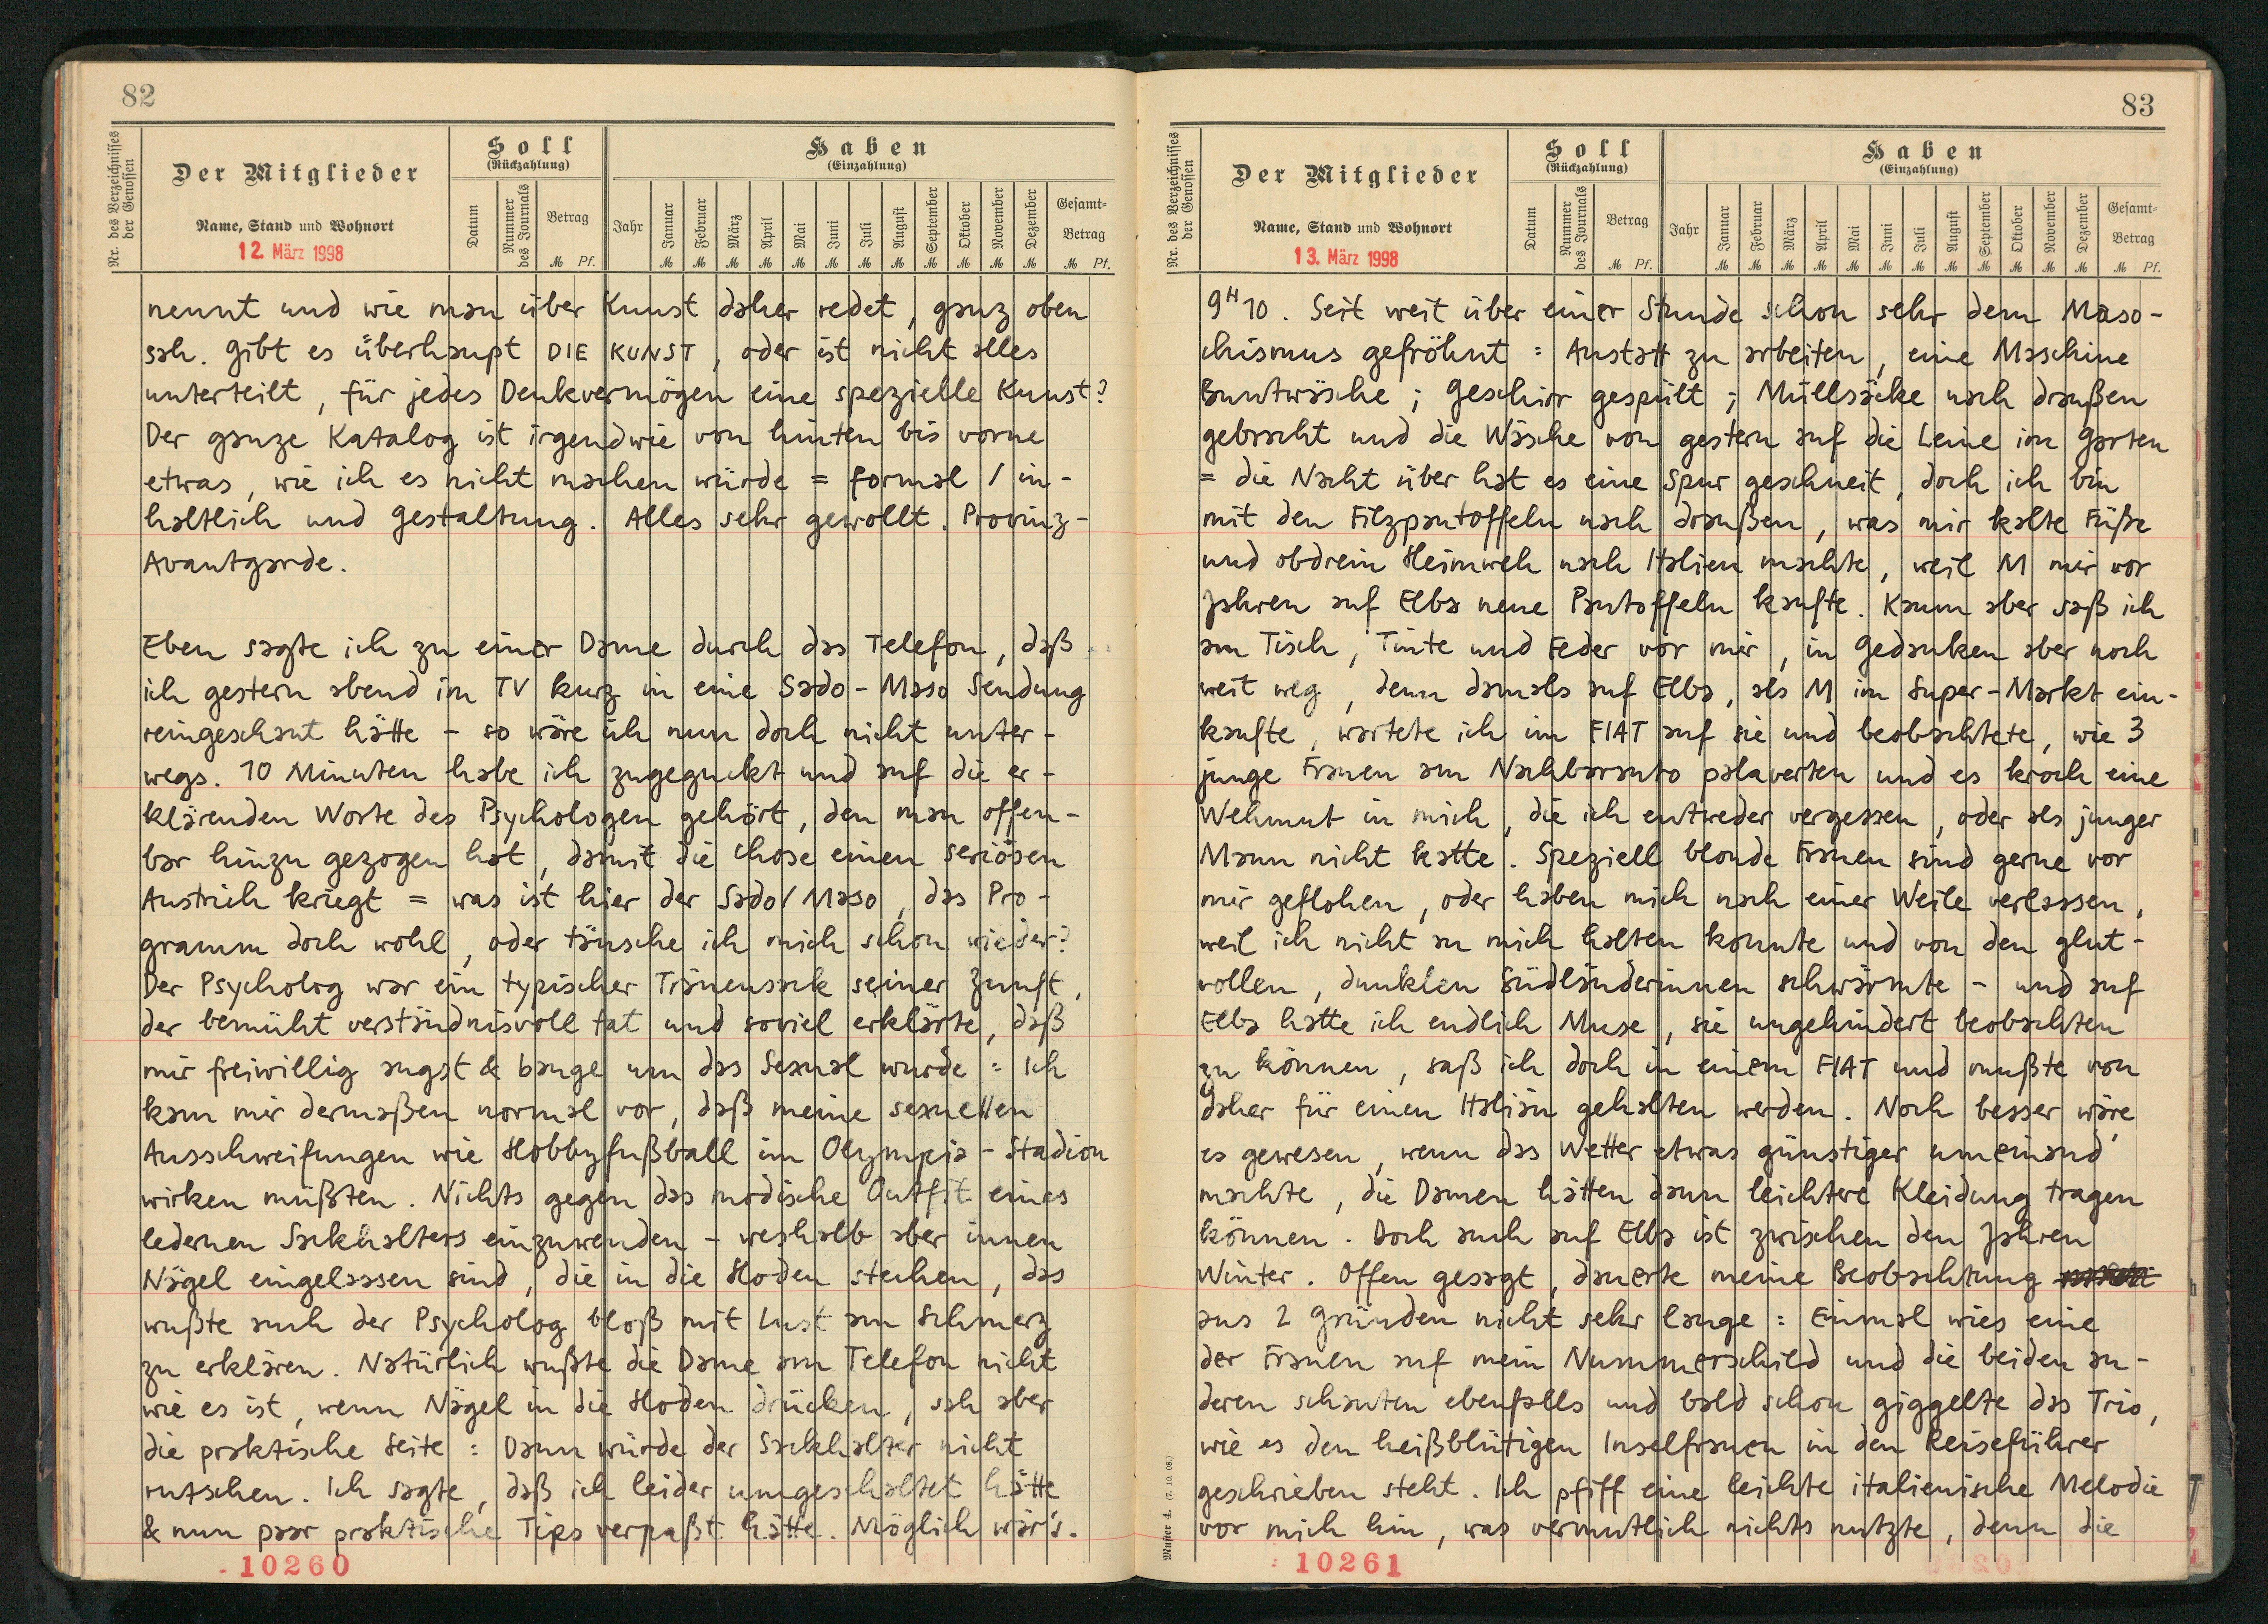 82
Nr. des Verzeichnisses der Genossen
Der Mitglieder
Name, Stand und Wohnort
12. März 1998
Soll
(Rückzahlung)
Datum
Nummer des Journals
Betrag
M Pf.
Haben
(Einzahlung)
Jahr
Januar Februar März April Mai Juni Juli August September Oktober November Dezember
M M M M M M M M M M M M
Gesamt-Betrag
M Pf.
nennt und wie man über Kunst daher redet, ganz oben
sah. Gibt es überhaupt DIE KUNST, oder ist nicht alles
unterteilt, für jedes Denkvermögen eine spezielle Kunst?
Der ganze Katalog ist irgendwie von hinten bis vorne
etwas, wie ich es nicht machen würde = formal / in-
haltlich und Gestaltung. Alles sehr gewollt. Provinz-
Avantgarde.
Eben sagte ich zu einer Dame durch das Telefon, daß
ich gestern abend im TV kurz in eine Sado-Maso Sendung
reingeschaut hätte - so wäre ich nun doch nicht unter-
wegs. 10 Minuten habe ich zugeguckt und auf die er-
klärenden Worte des Psychologen gehört, den man offen-
bar hinzu gezogen hat, damit die Chose einen seriösen
Anstrich kriegt = was ist hier der Sado/Maso, das Pro-
gramm doch wohl, oder täusche ich mich schon wieder?
Der Psycholog war ein typischer Tränensack seiner Zunft,
der bemüht verständnisvoll tat und soviel erklärte, daß
mir freiwillig angst & bange um das Sexual wurde = Ich
kam mir dermaßen normal vor, daß meine sexuellen
Ausschweifungen wie Hobbyfußball im Olympia-Stadion
wirken müßten. Nichts gegen das modische Outfit eines
ledernen Sackhalters einzuwenden - weshalb aber innen
Nägel eingelassen sind, die in die Hoden stechen, das
wußte auch der Psycholog bloß mit Lust am Schmerz
zu erklären. Natürlich wußte die Dame am Telefon nicht
wie es ist, wenn Nägel in die Hoden drücken, sah aber
die praktische Seite = Dann würde der Sackhalter nicht
rutschen. Ich sagte, daß ich leider umgeschaltet hätte
& nun paar praktische Tips verpaßt hätte. Möglich wär's.
10260
83
Nr. des Verzeichnisses der Genossen
Der Mitglieder
Name, Stand und Wohnort
13. März 1998
Soll
(Rückzahlung)
Datum
Nummer des Journals
Betrag
M Pf.
Haben
(Einzahlung)
Jahr
Januar Februar März April Mai Juni Juli August September Oktober November Dezember
M M M M M M M M M M M M
Gesamt-Betrag
M Pf.
9H10. Seit weit über einer Stunde schon sehr dem Maso-
chismus gefröhnt = Anstatt zu arbeiten, eine Maschine
Buntwäsche ; Geschirr gespült ; Müllsäcke nach draußen
gebracht und die Wäsche von gestern auf die Leine im Garten
= die Nacht über hat es eine Spur geschneit, doch ich bin
mit den Filzpantoffeln nach draußen, was mir kalte Füße
und obdrein Heimweh nach Italien machte, weil M mir vor
Jahren auf Elba neue Pantoffeln kaufte. Kaum aber saß ich
am Tisch, Tinte und Feder vor mir, in Gedanken aber noch
weit weg, denn damals auf Elba, als M im Super-Markt ein-
kaufte, wartete ich im FIAT auf sie und beobachtete, wie 3
junge Frauen am Nachbarauto palaverten und es kroch eine
Wehmut in mich, die ich entweder vergessen, oder als junger
Mann nicht hatte. Speziell blonde Frauen sind gerne vor
mir geflohen, oder haben mich nach einer Weile verlassen,
weil ich nicht an mich halten konnte und von den glut-
vollen, dunklen Südländerinnen schwärmte - und auf
Elba hatte ich endlich Muse, sie ungehindert beobachten
zu können, saß ich doch in einem FIAT und mußte von
daher für einen Italian gehalten werden. Noch besser wäre
es gewesen, wenn das Wetter etwas günstiger umeinand
machte, die Damen hätten dann leichtere Kleidung tragen
können. Doch auch auf Elba ist zwischen den Jahren
Winter. Offen gesagt, dauerte meine Beobachtung
aus 2 Gründen nicht sehr lange = Einmal wies eine
der Frauen auf mein Nummerschild und die beiden an-
deren schauten ebenfalls und bald schon giggelte das Trio,
wie es den heißblütigen Inselfrauen in den Reiseführer
geschrieben steht. Ich pfiff eine leichte italienische Melodie
vor mich hin, was vermutlich nichts nutzte, denn die
Muster 4.
10261